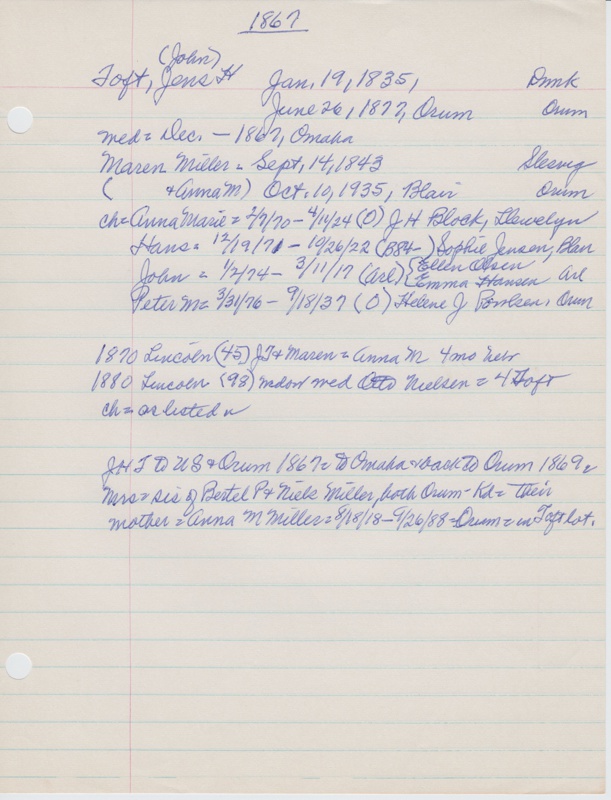 1867
(John)
Toft, Jens H Jan. 19, 1835, Dmk
June 26, 1877, Orum Orum
med = Dec. - 1867, Omaha
Maren Miller = Sept. 14, 1843 Slesvig
( + Anna M) Oct. 10, 1935, Blair Orum
ch = Anna Marie = 2/7/70 - 4/14/24 (O) J H Block, Llewelyn
Hans = 12/19/71 - 10/26/22 (B84-) Sophie Jensen, Blair
John = 1/2/74 - 3/11/17 (Arl) { Ellen Olsen
Emma Hansen Arl
Peter M = 3/31/76 - 9/18/37 (O) Helene J Orum
1870 Lincoln (45) J T & Maren = Anna M 4 mo
1880 Lincoln (98) widow med Otto Nielsen = 4 Toft
ch = as listed
J H T to US & Orum 1867 = to Omaha & back to Orum 1869
Mrs = sis of Bertel P & Niels Miller, both Orum - Kd = their
mother = Anna M Miller = 8/18/18 - 9/26/88 = Orum = in Toft lot.